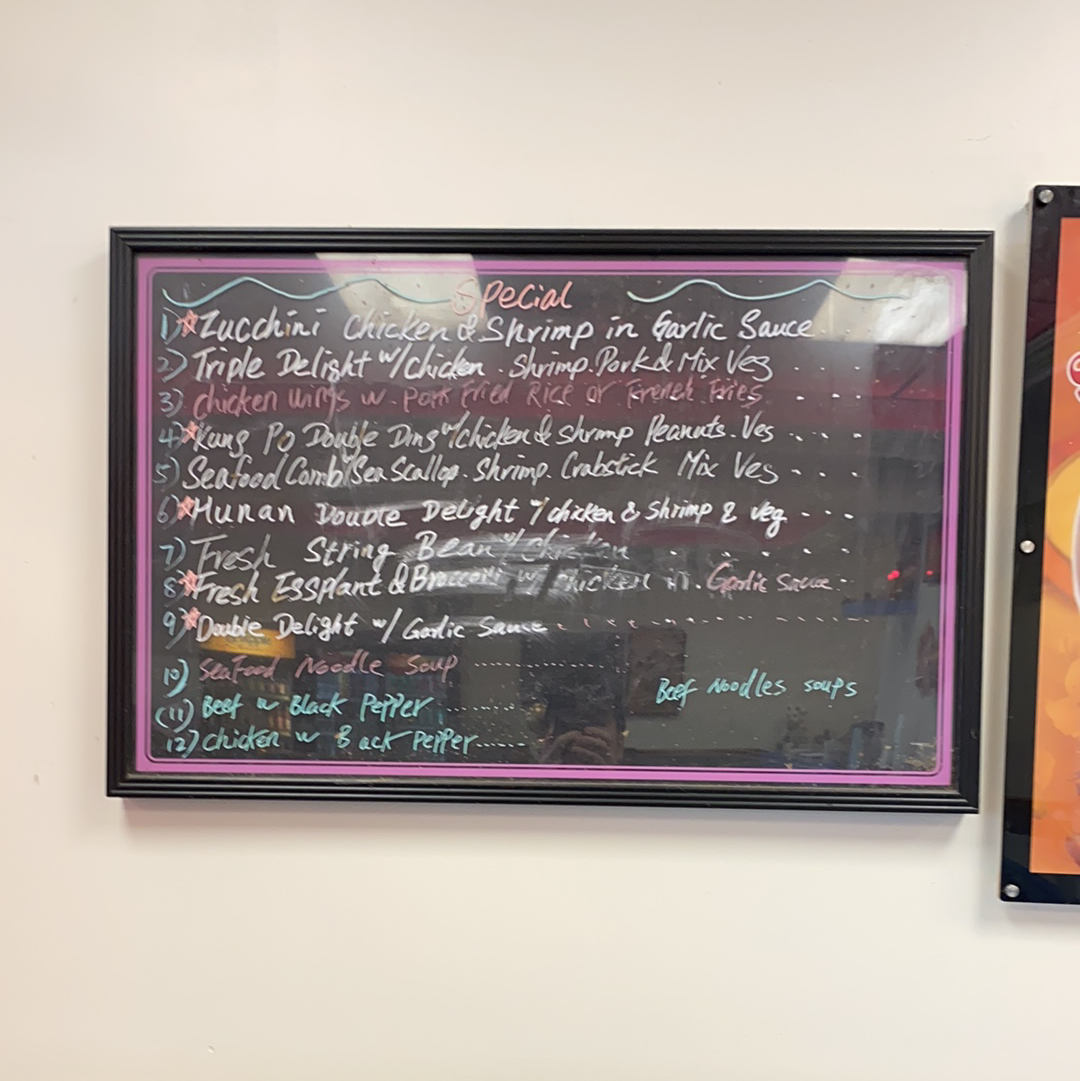 Special
1) *Zucchini Chicken & Shrimp in Garlic Sauce . . .
2) Triple Delight w/Chicken . Shrimp. Pork & Mix Veg . . . .
3) chicken wings w. Pork Fried Rice or French Fries . . .
4) *Kung Po Double Ding w/chicken & shrimp Peanuts. Veg . . . .
5) Seafood Comb w/ Sea Scallop. Shrimp. Crabstick Mix Veg . . .
6) *Hunan Double Delight w/chicken & shrimp & veg . . .
7) Fresh String Bean w/ Chicken . . . . .
8) *Fresh Eggplant & Broccoli w/ chicken in. Garlic sauce . .
9) *Double Delight w/ Garlic Sauce ............
10) SeaFood Noodle Soup ..............
Beef Noodles soups
(11) Beef w Black Pepper ........
12) chicken w B ack Pepper......